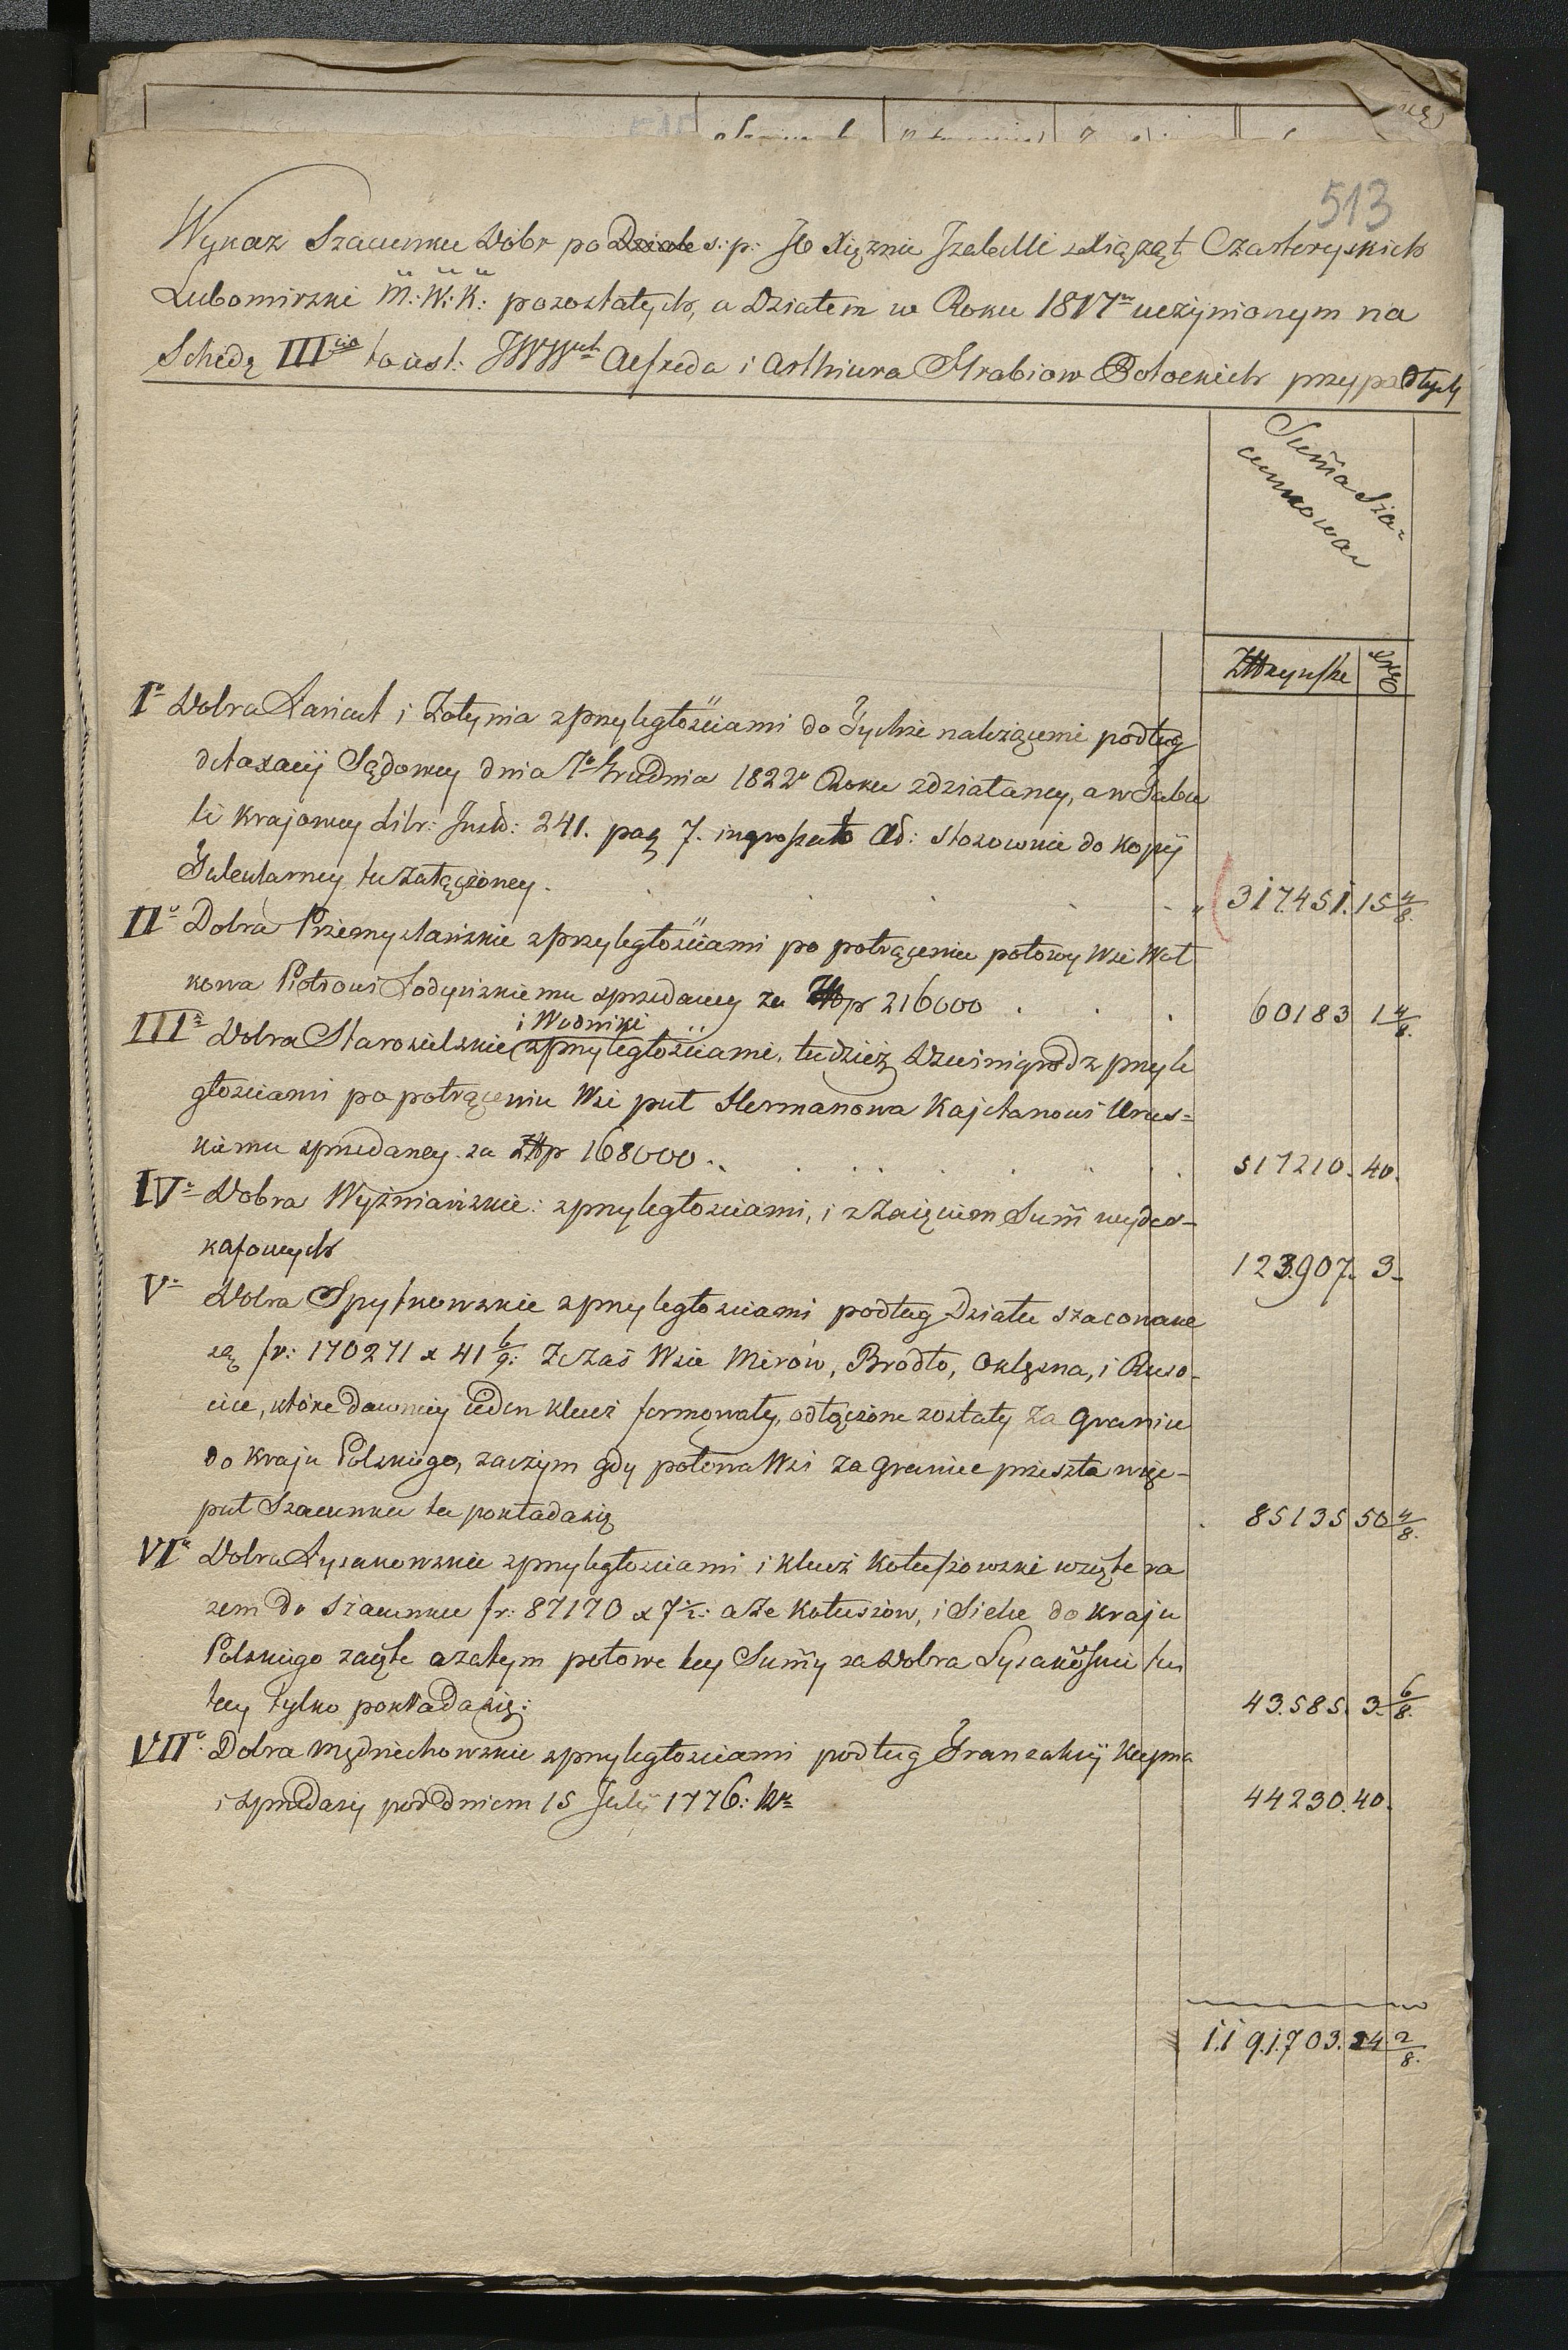 513
Wykaz Szacunku Dóbr po Dziale s: p: JO Xiężnie Izabelli z Xiążąt Czartoryskich
Lubomirski M: W: K: pozostałych, a Działem w Roku 1817m uczynionym na
Schedę IIIcią to iest: JWWych Alfreda i Arthura Hrabiow Potockich przypadłych
Suma Sza-
cunkowa
ZłRzyńskie
I° Dobra Łańcut i Żołynia z przyległościami do Tychże należącemi podług
detaxacij Sądowey dnia 7° Grudnia 1822° Roku zdziałaney, a w Tabu
li Krajowey Libr: Instr: 241. pag 7. ingrossato ad: stosownie do kopij
Tabularney tu załączoney.
317.451. 15 4/8.
II° Dobra Przemyślańskie z przyległościami po potrąceniu połowy Wsi Woł
kowa Piotrowi Łodyńskiemu sprzedaney za Złp 216000
60183 1 4/8.
i Wodniki
III° Dobra Starosielskie z przyległościami, tudzież Dzwinigrod z przyle
głościami po potrąceniu Wsi puł Hermanowa Kajetanowi Urus=
kiemu sprzedaney za Złp 168000.
517210. 40.
IV° Dobra Wyżniańskie: z przyległościami, i z Zaięciem Sum wyder-
kafowych
123.907. 3.
V° Dobra Spytkowskie z przyległościami podług Działu szacowane
są fr: 170271 x 41 6/9: Ze Zaś Wsie Mirów, Brodło, Oklęsna, i Ruso-
cice, które dawniey ieden klucz formowały, odłączone zostały za Granice
do Kraju Polskiego, zaczym gdy połowa Wsi za Granice przeszła więc-
puł Szacunku tu pokłada się
85135 50 4/8.
VI° Dobra Łysakowskie z przyległościami i klucz Kotuszowski wzięte ra
zem do szacunku fr: 87170 x 7 1/2: a Ze Kotuszów, i Sielce do Kraju
Polskiego zaięte a zatym połowe tey Sumy za Dobra Łysakowskie tu
tey tylko pokłada się:
43.585. 3. 6/8.
VII° Dobra Mędrzechowskie z przyległościami podług Tranzakcij Kupna
i sprzedaży pod dniem 15 Julij 1776: R°
44230. 40.
1.191.703. 34 2/8.